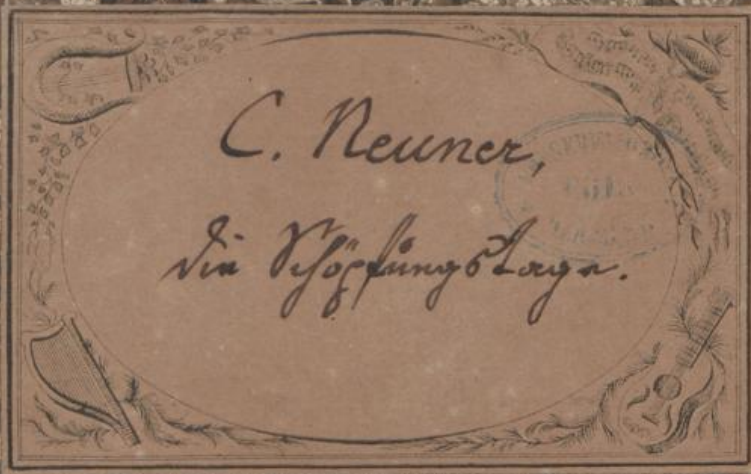 C. Neuner,
die Schöpfungstage.